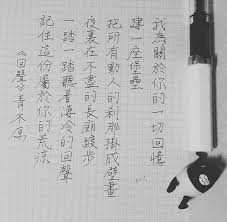 我為關於你的一切回憶
建一座堡壘
把所有動人的剎那掛成壁畫
夜裏在不盡的長廊踱步
一踏一踏聽著淒冷的回聲
記住這份屬於你的荒涼
《回聲》青木焉